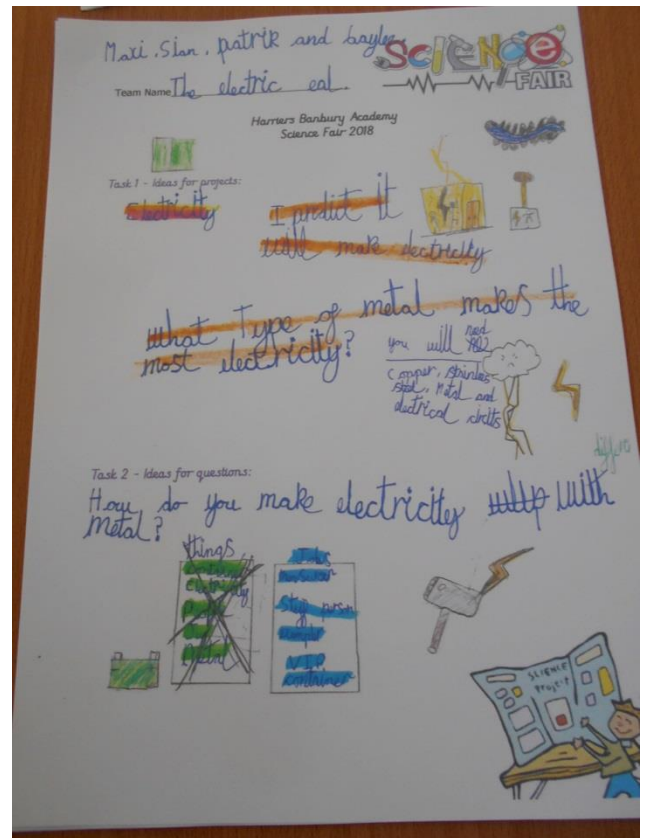 Maxi, Sian, patrik and bayley
SCIENCE
FAIR
Team Name The electric eal.
Harriers Banbury Academy
Science Fair 2018
Task 1 - Ideas for projects:
Electricity
I predict it
will make electricity
what Type of metal makes the
most electricity?
you will
Copper, stainles
steel, Metal and
electrical
Task 2 - Ideas for questions:
How do you make electricity with
Metal?
things
electricity
Metal
Jobs
Staff person
V.I.P
container
SCIENCE
Project